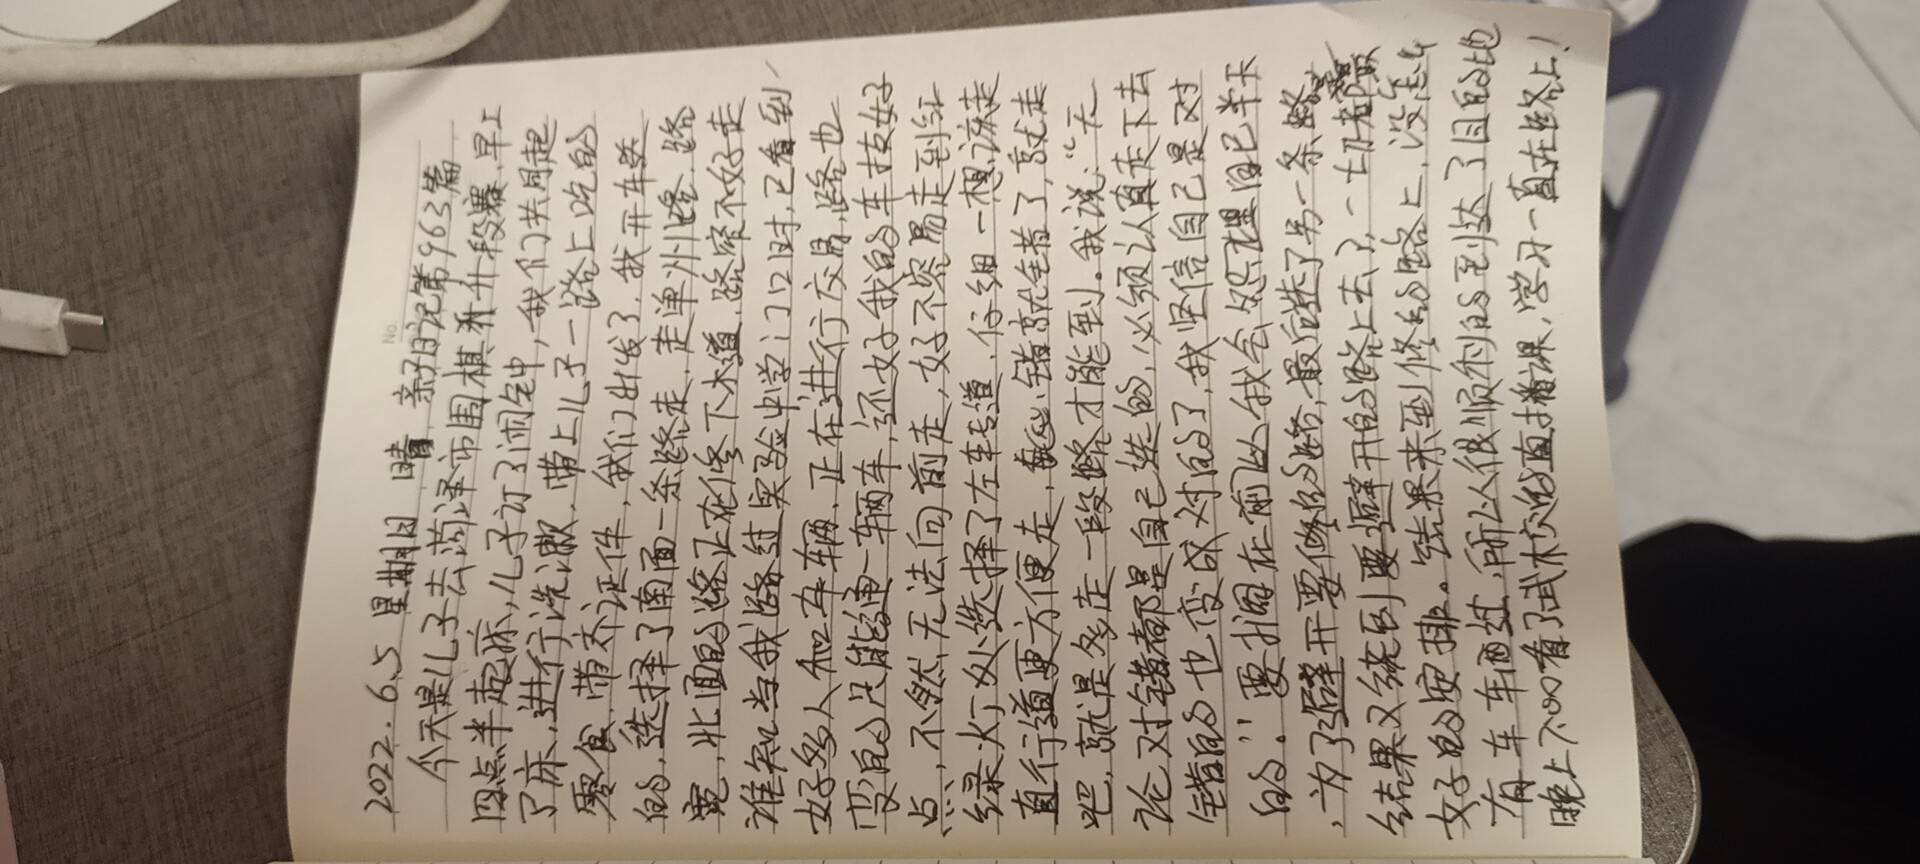 No.
2022.6.5 星期日 晴 亲子日记第963篇
今天是儿子去菏泽市围棋升段赛,早上
四点半起床,儿子订了闹钟,我们共同起
了床,进行洗漱,带上儿子一路上吃的
零食,带齐证件,我们出发了,我开车送
的,选择了南面一条路走,走单州路,路
宽,北面的路正在修下水道,路窄不好走
谁知当我路过实验中学门口时,已看到
好多人和车辆,正在进行交易,路也
变的只能通一辆车,还好我的车技好
点,不然,无法向前走,好不容易走到红
绿灯处选择了左车道,仔细一想该走
直行道更方便走,错就错着了,就走
吧,就是多走一段路才能到。我说:“无
论对错都是自己选的,必须认真走下去
错的也变成对的了,我坚信自己是对
的。”要拥在前以我会
,为了避开要修的路,最后选了另一条路
结果又绕到要避开的路上去了,一切都是最
好的安排。结果来到修的路上,没怎么
有车车通过,所以很顺利的到达了目的地
晚上7:00看了武校的直播课,学习一直在路上!